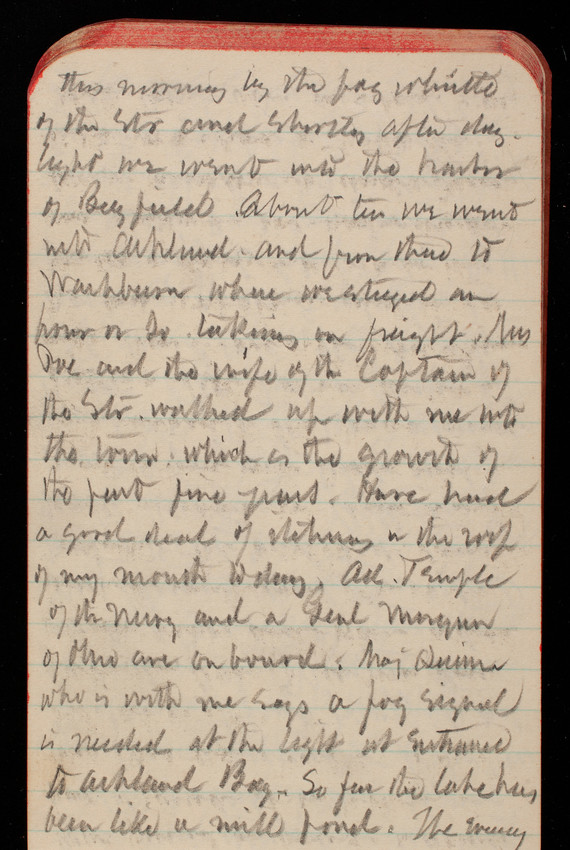 this morning by the fog whistle
of the Str and shortly after day-
light we went into the harbor
of Bayfield. About ten we went
into Ashland and from there to
Washburn where we stayed an
hour or so taking on freight. Mrs
Poe and the wife of the Captain of
the Str. walked up with me into
the town which is the growth of
the past five years. Have had
a good deal of itching in the roof
of my mouth today. Ad. Temple
of the Navy and a Genl Morgan
of Ohio are on board. Maj Quinn
who is with me says a fog signal
is needed at the light at entrance
to Ashland Bay. So far the lake has
been like a mill pond. The evening